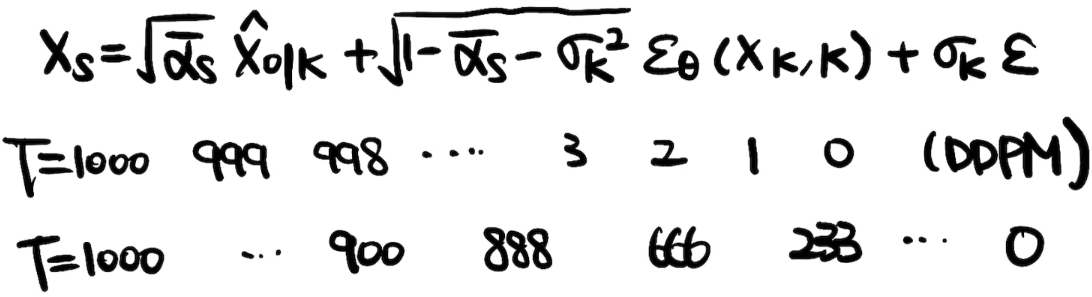 Xs=√ᾱs X̂0|K+√1-ᾱs-σK² εθ(XK,K)+σK ε
T=1000 999 998 ···· 3 2 1 0 (DDPM)
T=1000 ··· 900 888 666 233 ··· 0